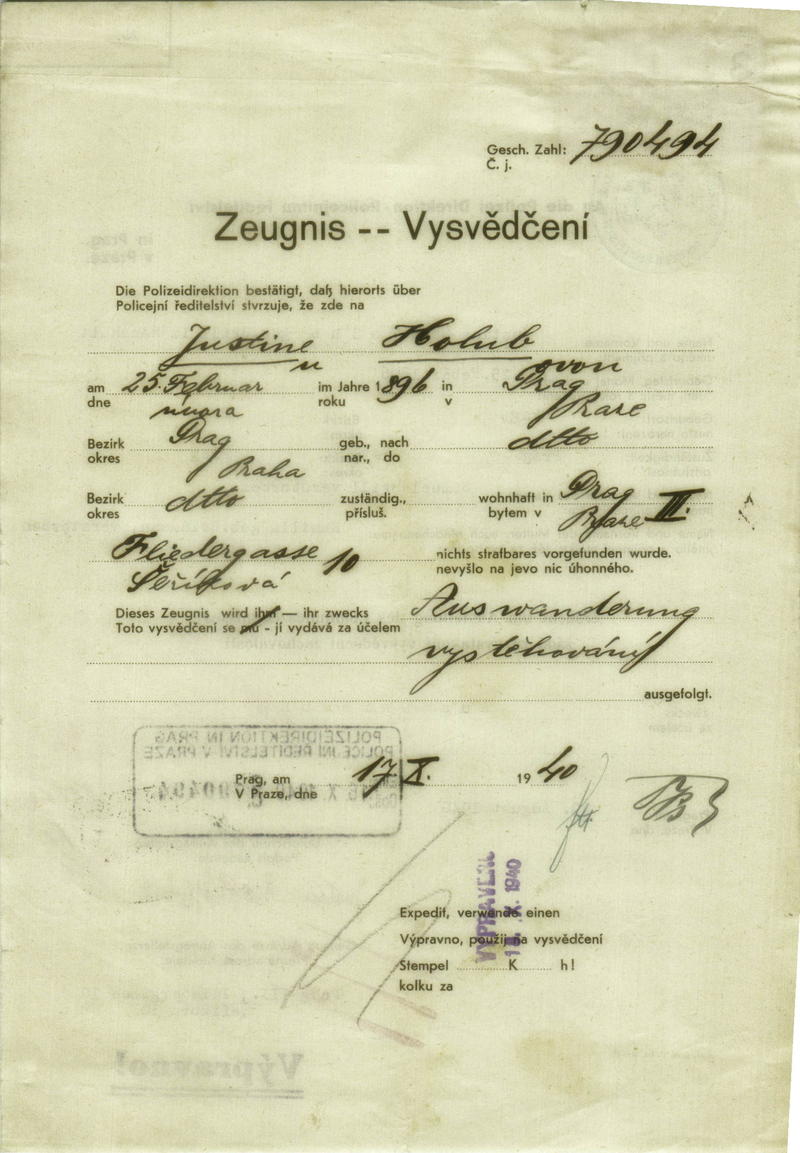 Gesch. Zahl: 790494
Č. j.
Zeugnis -- Vysvědčení
Die Polizeidirektion bestätigt, daß hierorts über
Policejní ředitelství stvrzuje, že zde na
Justine Holub
u ovon
am 25. Februar im Jahre 1896 in Prag
dne února roku v Praze
Bezirk Prag geb., nach dtto
okres Praha nar., do
Bezirk dtto zuständig., wohnhaft in Prag III.
okres přísluš. bytem v Praze
Fliedergasse 10 nichts strafbares vorgefunden wurde.
Šeříková nevyšlo na jevo nic úhonného.
Dieses Zeugnis wird ihm — ihr zwecks Auswanderung
Toto vysvědčení se mu - jí vydává za účelem
vystěhování
ausgefolgt.
POLIZEIDIREKTION IN PRAG
POLICEJNÍ ŘEDITELSTVÍ V PRAZE
Prag, am 17 X. 19 40
V Praze, dne
VYPRAVENO
X. 1940
Expedit, verwende einen
Výpravno, použij na vysvědčení
Stempel K h!
kolku za
Výpravno!